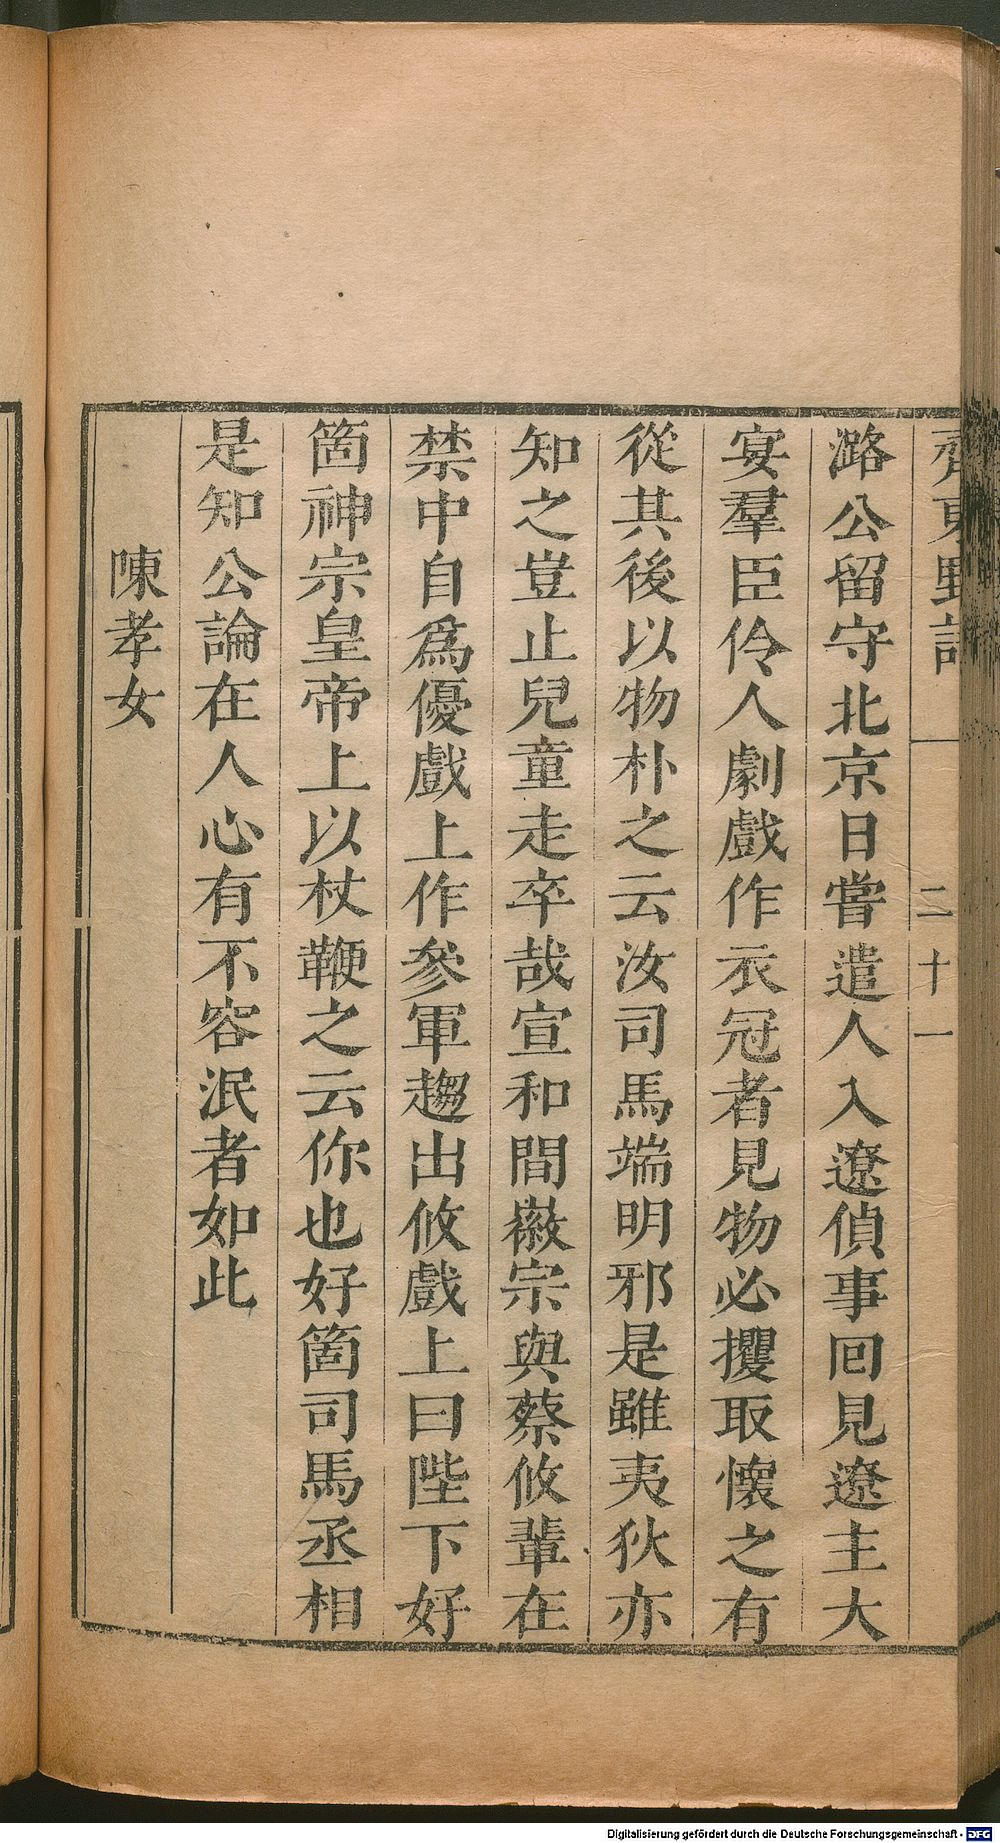 齊東野語 二十 一
潞公留守北京日嘗遣人入遼偵事回見遼主大
宴羣臣伶人劇戲作衣冠者見物必攫取懷之有
從其後以物朴之云汝司馬端明邪是雖夷狄亦
知之豈止兒童走卒哉宣和間徽宗與蔡攸輩在
禁中自爲優戲上作參軍趨出攸戲上曰陛下好
箇神宗皇帝上以杖鞭之云你也好箇司馬丞相
是知公論在人心有不容泯者如此
陳孝女
Digitalisierung gefördert durch die Deutsche Forschungsgemeinschaft - DFG